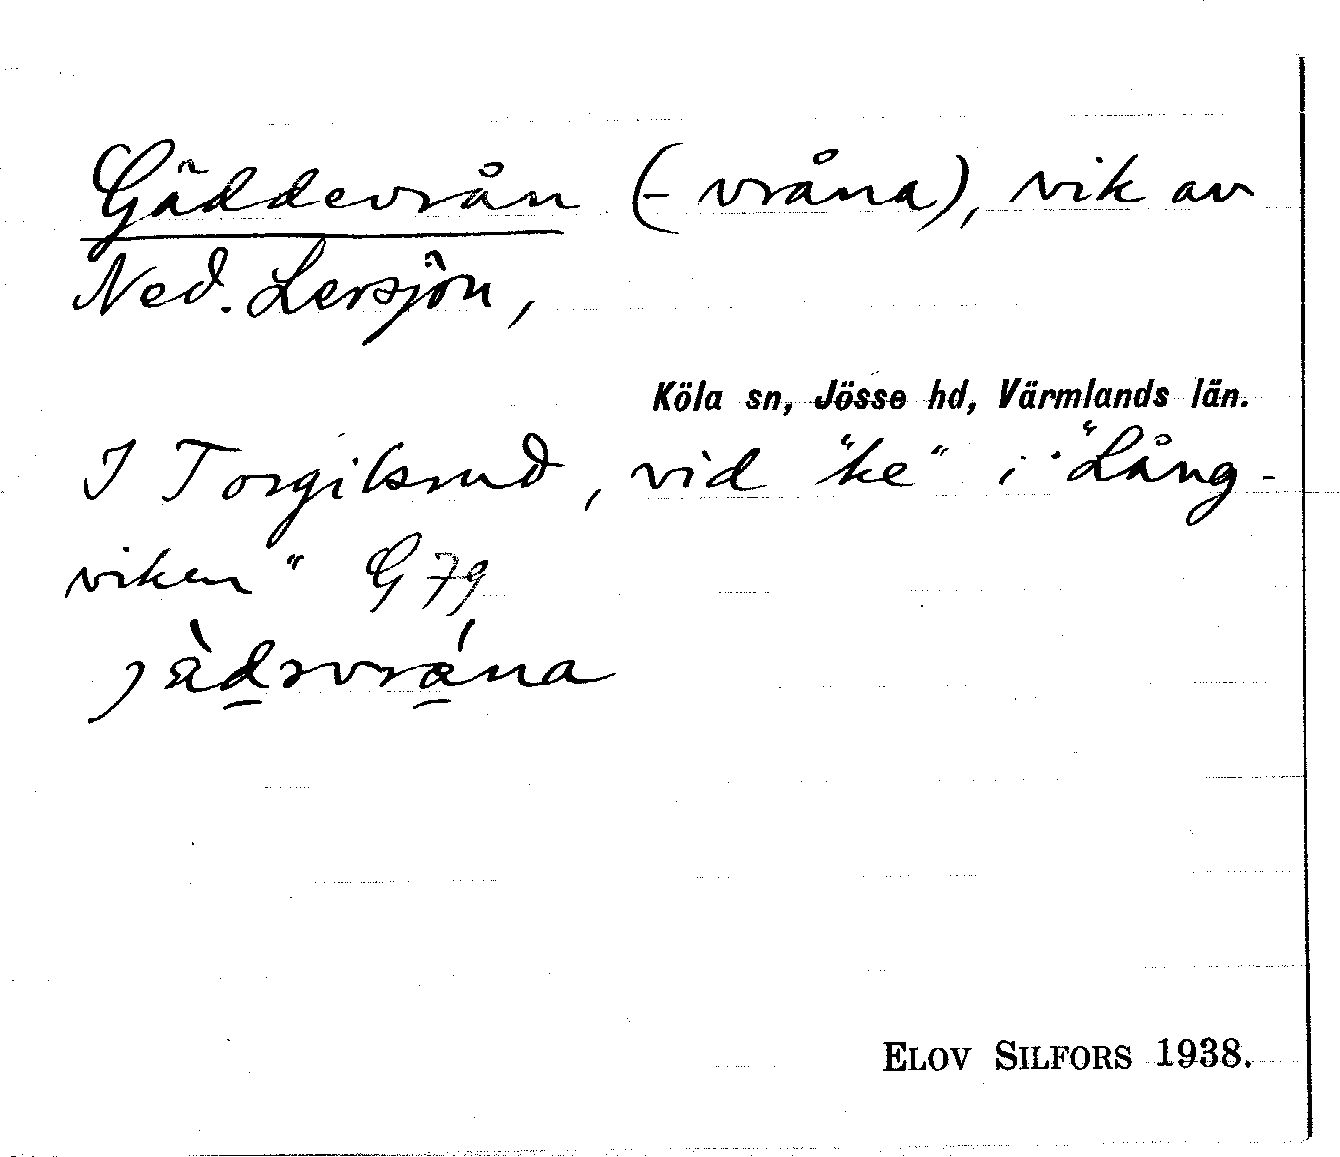 Gäddevrån (-vråna), vik av
Ned. Lersjön,
Köla sn, Jösse hd, Värmlands län.
I Torgilsrud, vid "ke" i "Lång-
viken" G 79
ELOV SILFORS 1938.